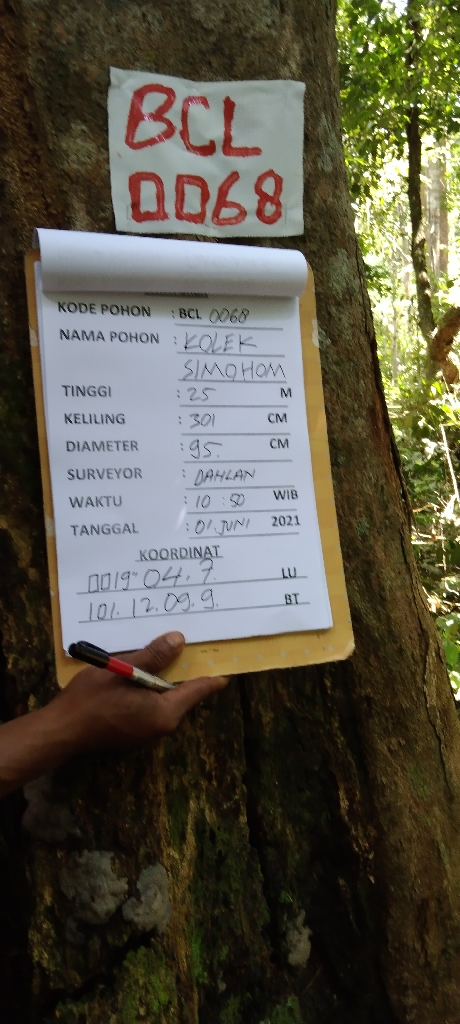 BCL
0068
KODE POHON : BCL 0068
NAMA POHON : KOLEK
SIMOHOM
TINGGI : 25 M
KELILING : 301 CM
DIAMETER : 95. CM
SURVEYOR : DAHLAN
WAKTU : 10 : 50 WIB
TANGGAL : 01. JUNI 2021
KOORDINAT
0019" 04. 7 LU
101. 12. 09. 9. BT